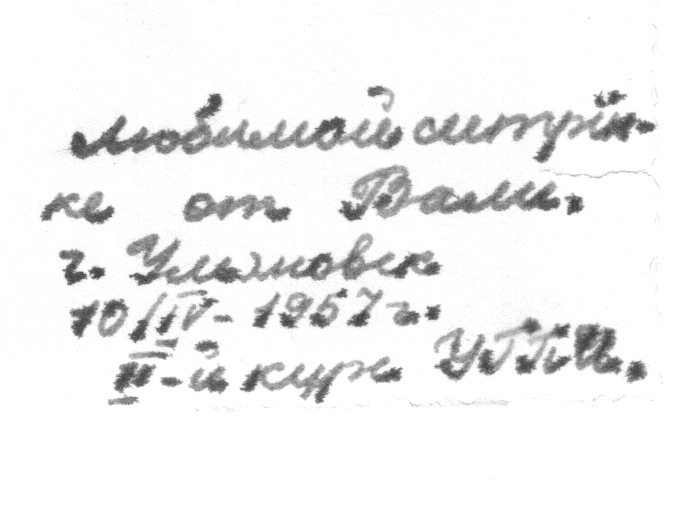 любимой сестрён-
ке от Вали.
г. Ульяновск
10/IV-1957 г.
III-й курс УГПИ.